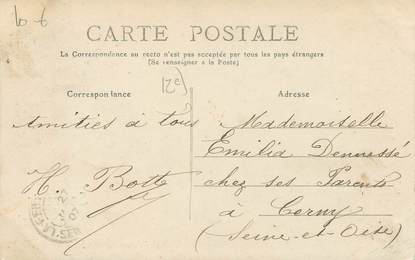 CARTE POSTALE
La Correspondance au recto n'est pas acceptée par tous les pays étrangers
(Se renseigner à la Poste)
Correspondance
Adresse
Amitiés à tous
H. Bott
Mademoiselle
Emilia
chez ses Parents
à Cerny
(Seine-et-Oise)